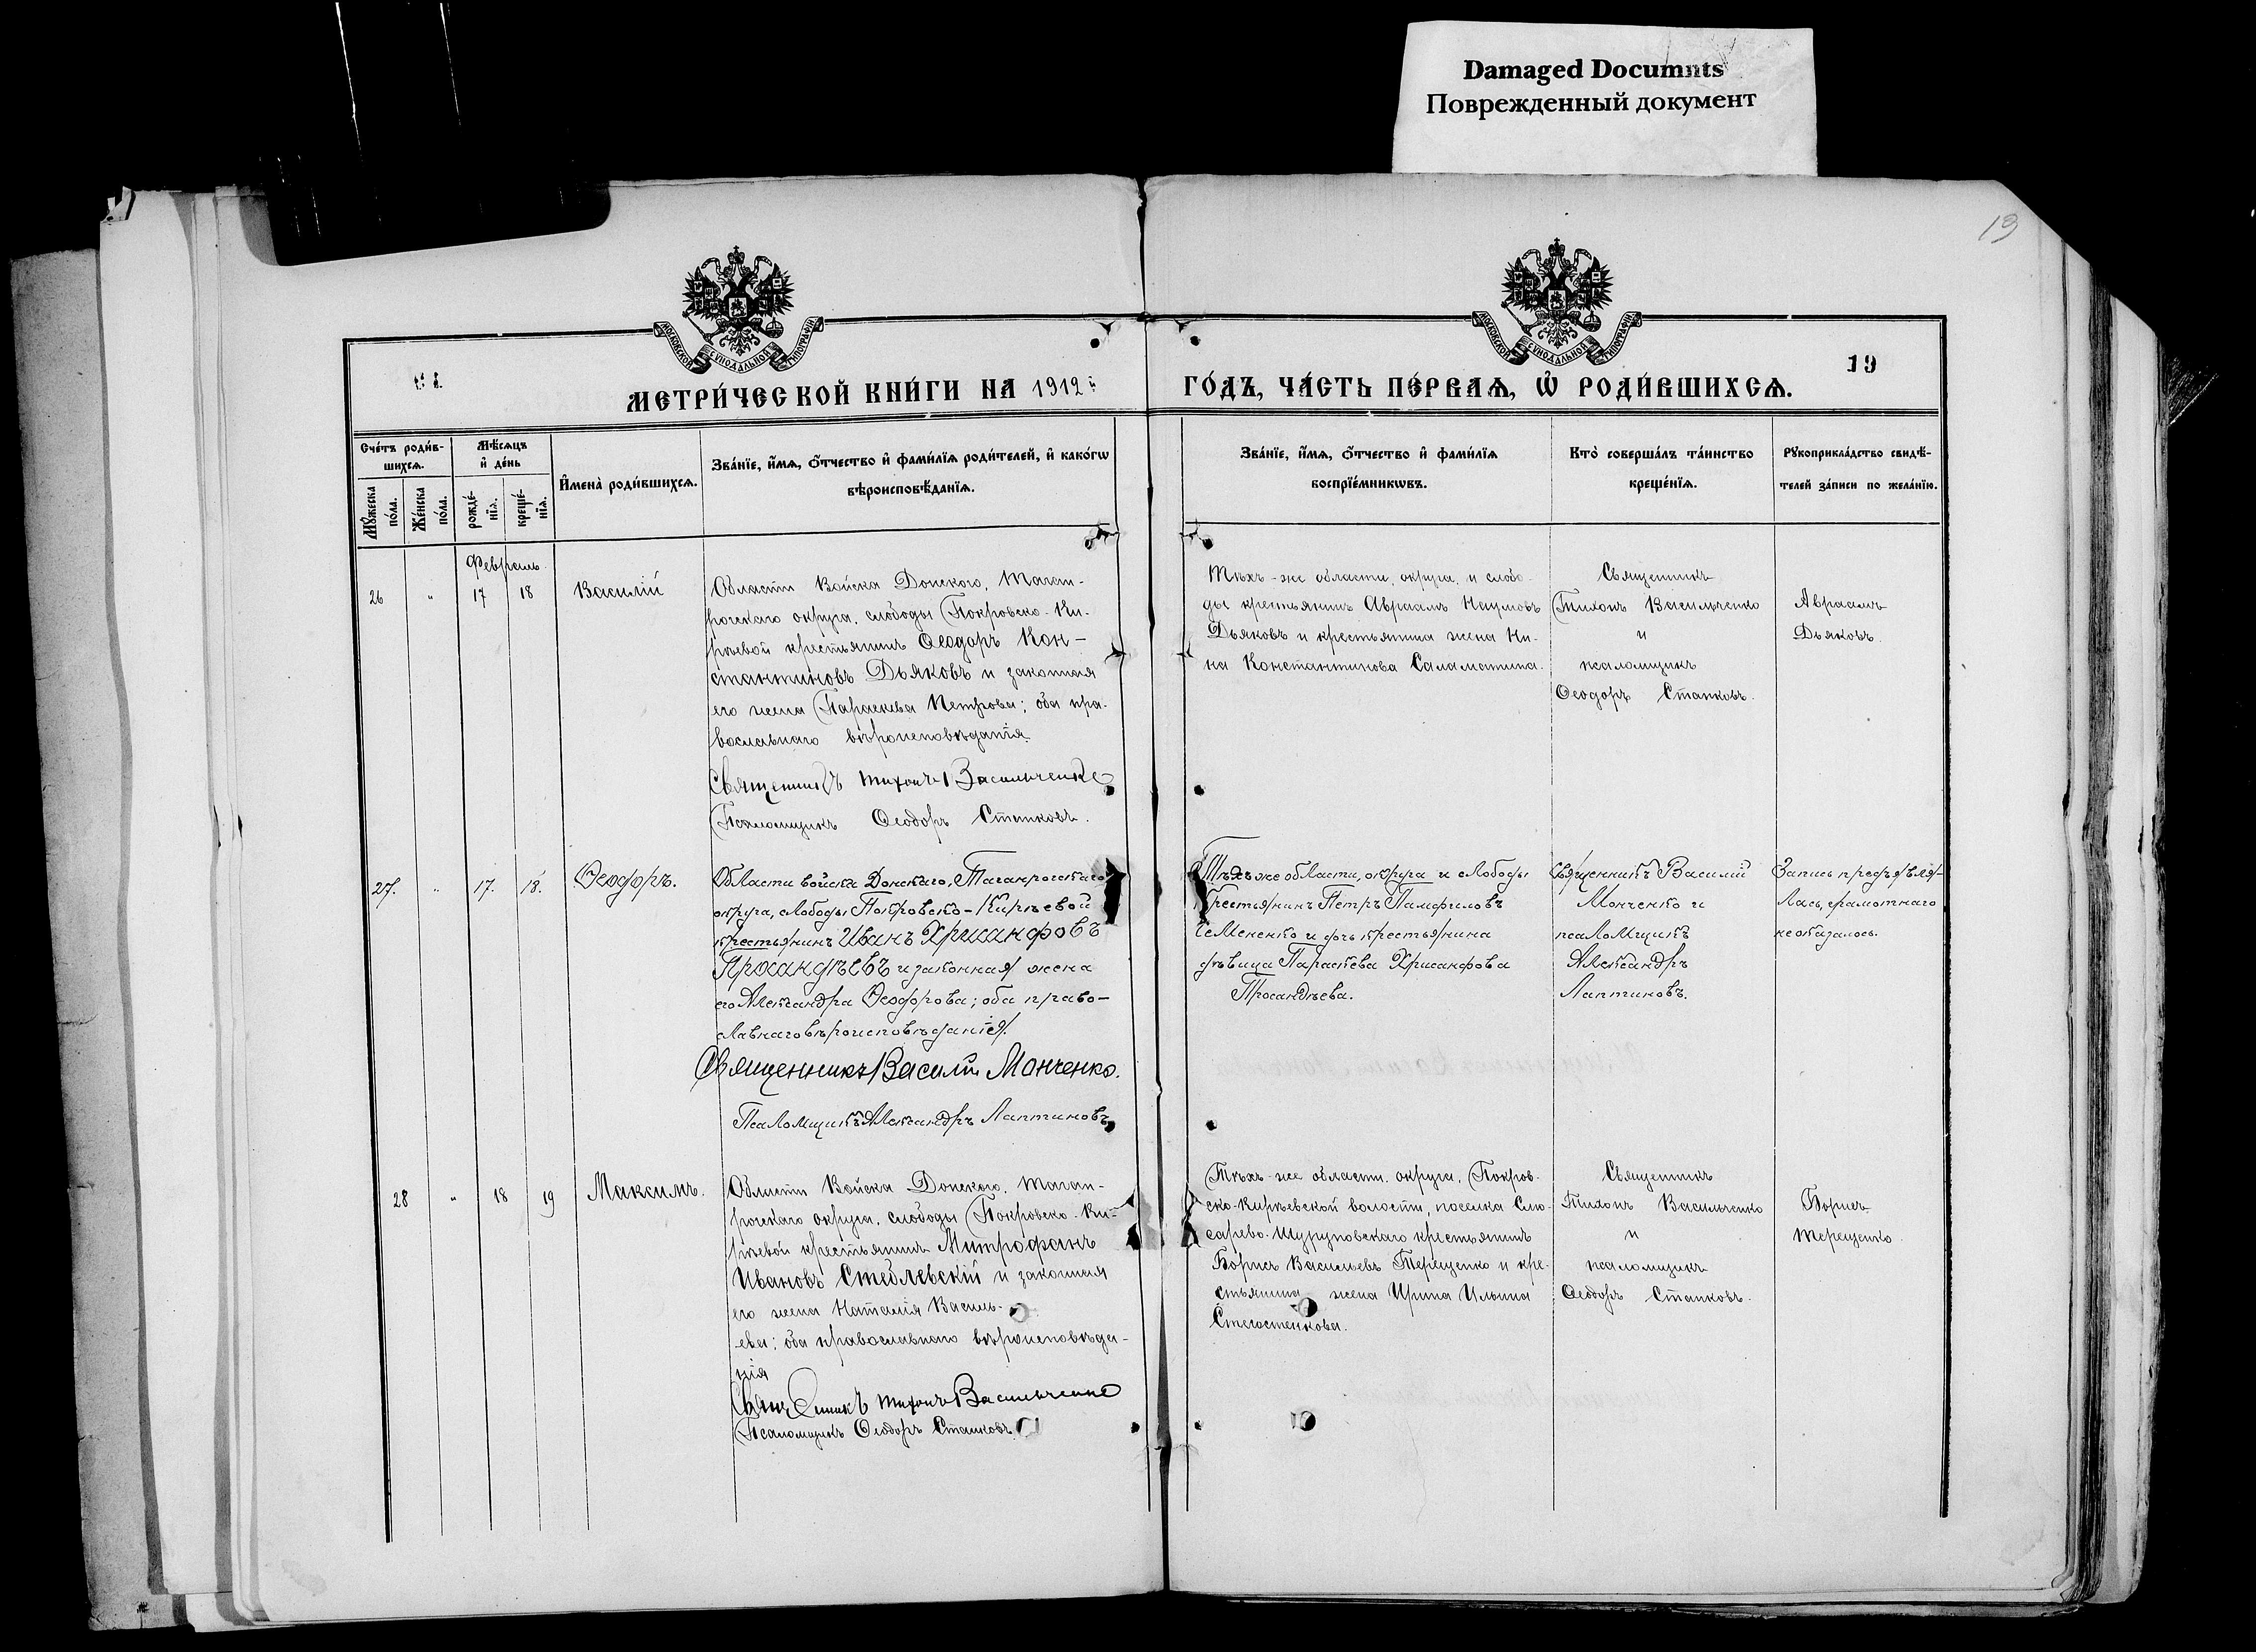 Damaged Documnts
Поврежденный документ
13
МОСКОВСКОЙ СѴНОДАЛЬНОЙ ТИПОГРАФІИ
МОСКОВСКОЙ СѴНОДАЛЬНОЙ ТИПОГРАФІИ
МЕТРИ́ЧЕСКОЙ КНИ́ГИ НА 1912 й
ГО́ДЪ, ЧА́СТЬ ПЕ́РВАѦ, Ѡ҆ РОДИ́ВШИХСѦ.
19
Сче́тъ роди́в-
шихсѧ.
Мꙋ́жеска по́ла.
Же́нска по́ла.
Мѣ́сѧцъ
и҆ де́нь
рожде́-
нїѧ.
креще́-
нїѧ.
И҆мена̀ роди́вшихсѧ.
Зва́нїе, и҆́мѧ, ѻ҆́тчество и҆ фами́лїѧ роди́телей, и҆ како́гѡ
вѣроисповѣ́данїѧ.
Зва́нїе, и҆́мѧ, ѻ҆́тчество и҆ фами́лїѧ
воспрїе́мникѡвъ.
Кто̀ соверша́лъ та́инство
креще́нїѧ.
Рꙋкоприкла́дство свидѣ́-
телей за́писи по жела́нїю.
Февраль
26 " 17 18 Василій
Области Войска Донского, Таган-
рогскаго округа, слободы Покровско-Ки-
рѣевой крестьянинъ Ѳеодоръ Кон-
стантиновъ Дьяковъ и законная
его жена Параскева Петрова; оба пра-
вославнаго вѣроисповѣданія
Священникъ Тихонъ Васильченко
Псаломщикъ Ѳеодоръ Станковъ.
Тѣхъ-же области, округа, и слобо-
ды крестьянинъ Авраамъ Наумовъ
Дьяковъ и крестьянина жена Ни-
на Константинова Саламатина.
Священникъ
Тихонъ Васильченко
и
псаломщикъ
Ѳеодоръ Станковъ.
Авраамъ
Дьяковъ.
27. " 17. 18. Ѳеодоръ.
Области войска Донскаго, Таганрогскаго
округа, слободы Покровско-Кирѣевой
крестьянинъ Иванъ Хрисанфовъ
Просандѣевъ и законная жена
его Александра Ѳеодорова; оба право-
славнаго вѣроисповѣданія.
Священникъ Василій Монченко.
Псаломщикъ Александръ Лаптиновъ
Тѣхъ же области, округа и слободы
крестьянинъ Петръ Памфиловъ
Семененко и дочь крестьянина
дѣвица Параскева Хрисанфова
Просандѣева.
Священникъ Василій
Монченко и
псаломщикъ
Александръ
Лаптиновъ.
Запись предъявля-
лась, грамотнаго
не оказалось.
28 " 18 19 Максимъ.
Области Войска Донского, Таган-
рогскаго округа, слободы Покровско-Ки-
рѣевой крестьянинъ Митрофанъ
Ивановъ Стеблевскій и законная
его жена Наталія Василь-
ева; оба православнаго вѣроисповѣда-
нія
Священникъ Тихонъ Васильченко
Псаломщикъ Ѳеодоръ Станковъ
Тѣхъ-же области, округа, Покров-
ско-Кирѣевской волости, поселка Слю-
сарево-Шурупковскаго крестьянинъ
Борисъ Васильевъ Терещенко и кре-
стьянина жена Ирина Ильина
Стегостенкова.
Священникъ
Тихонъ Васильченко
и
псаломщикъ
Ѳеодоръ Станковъ.
Борисъ
Терещенко.